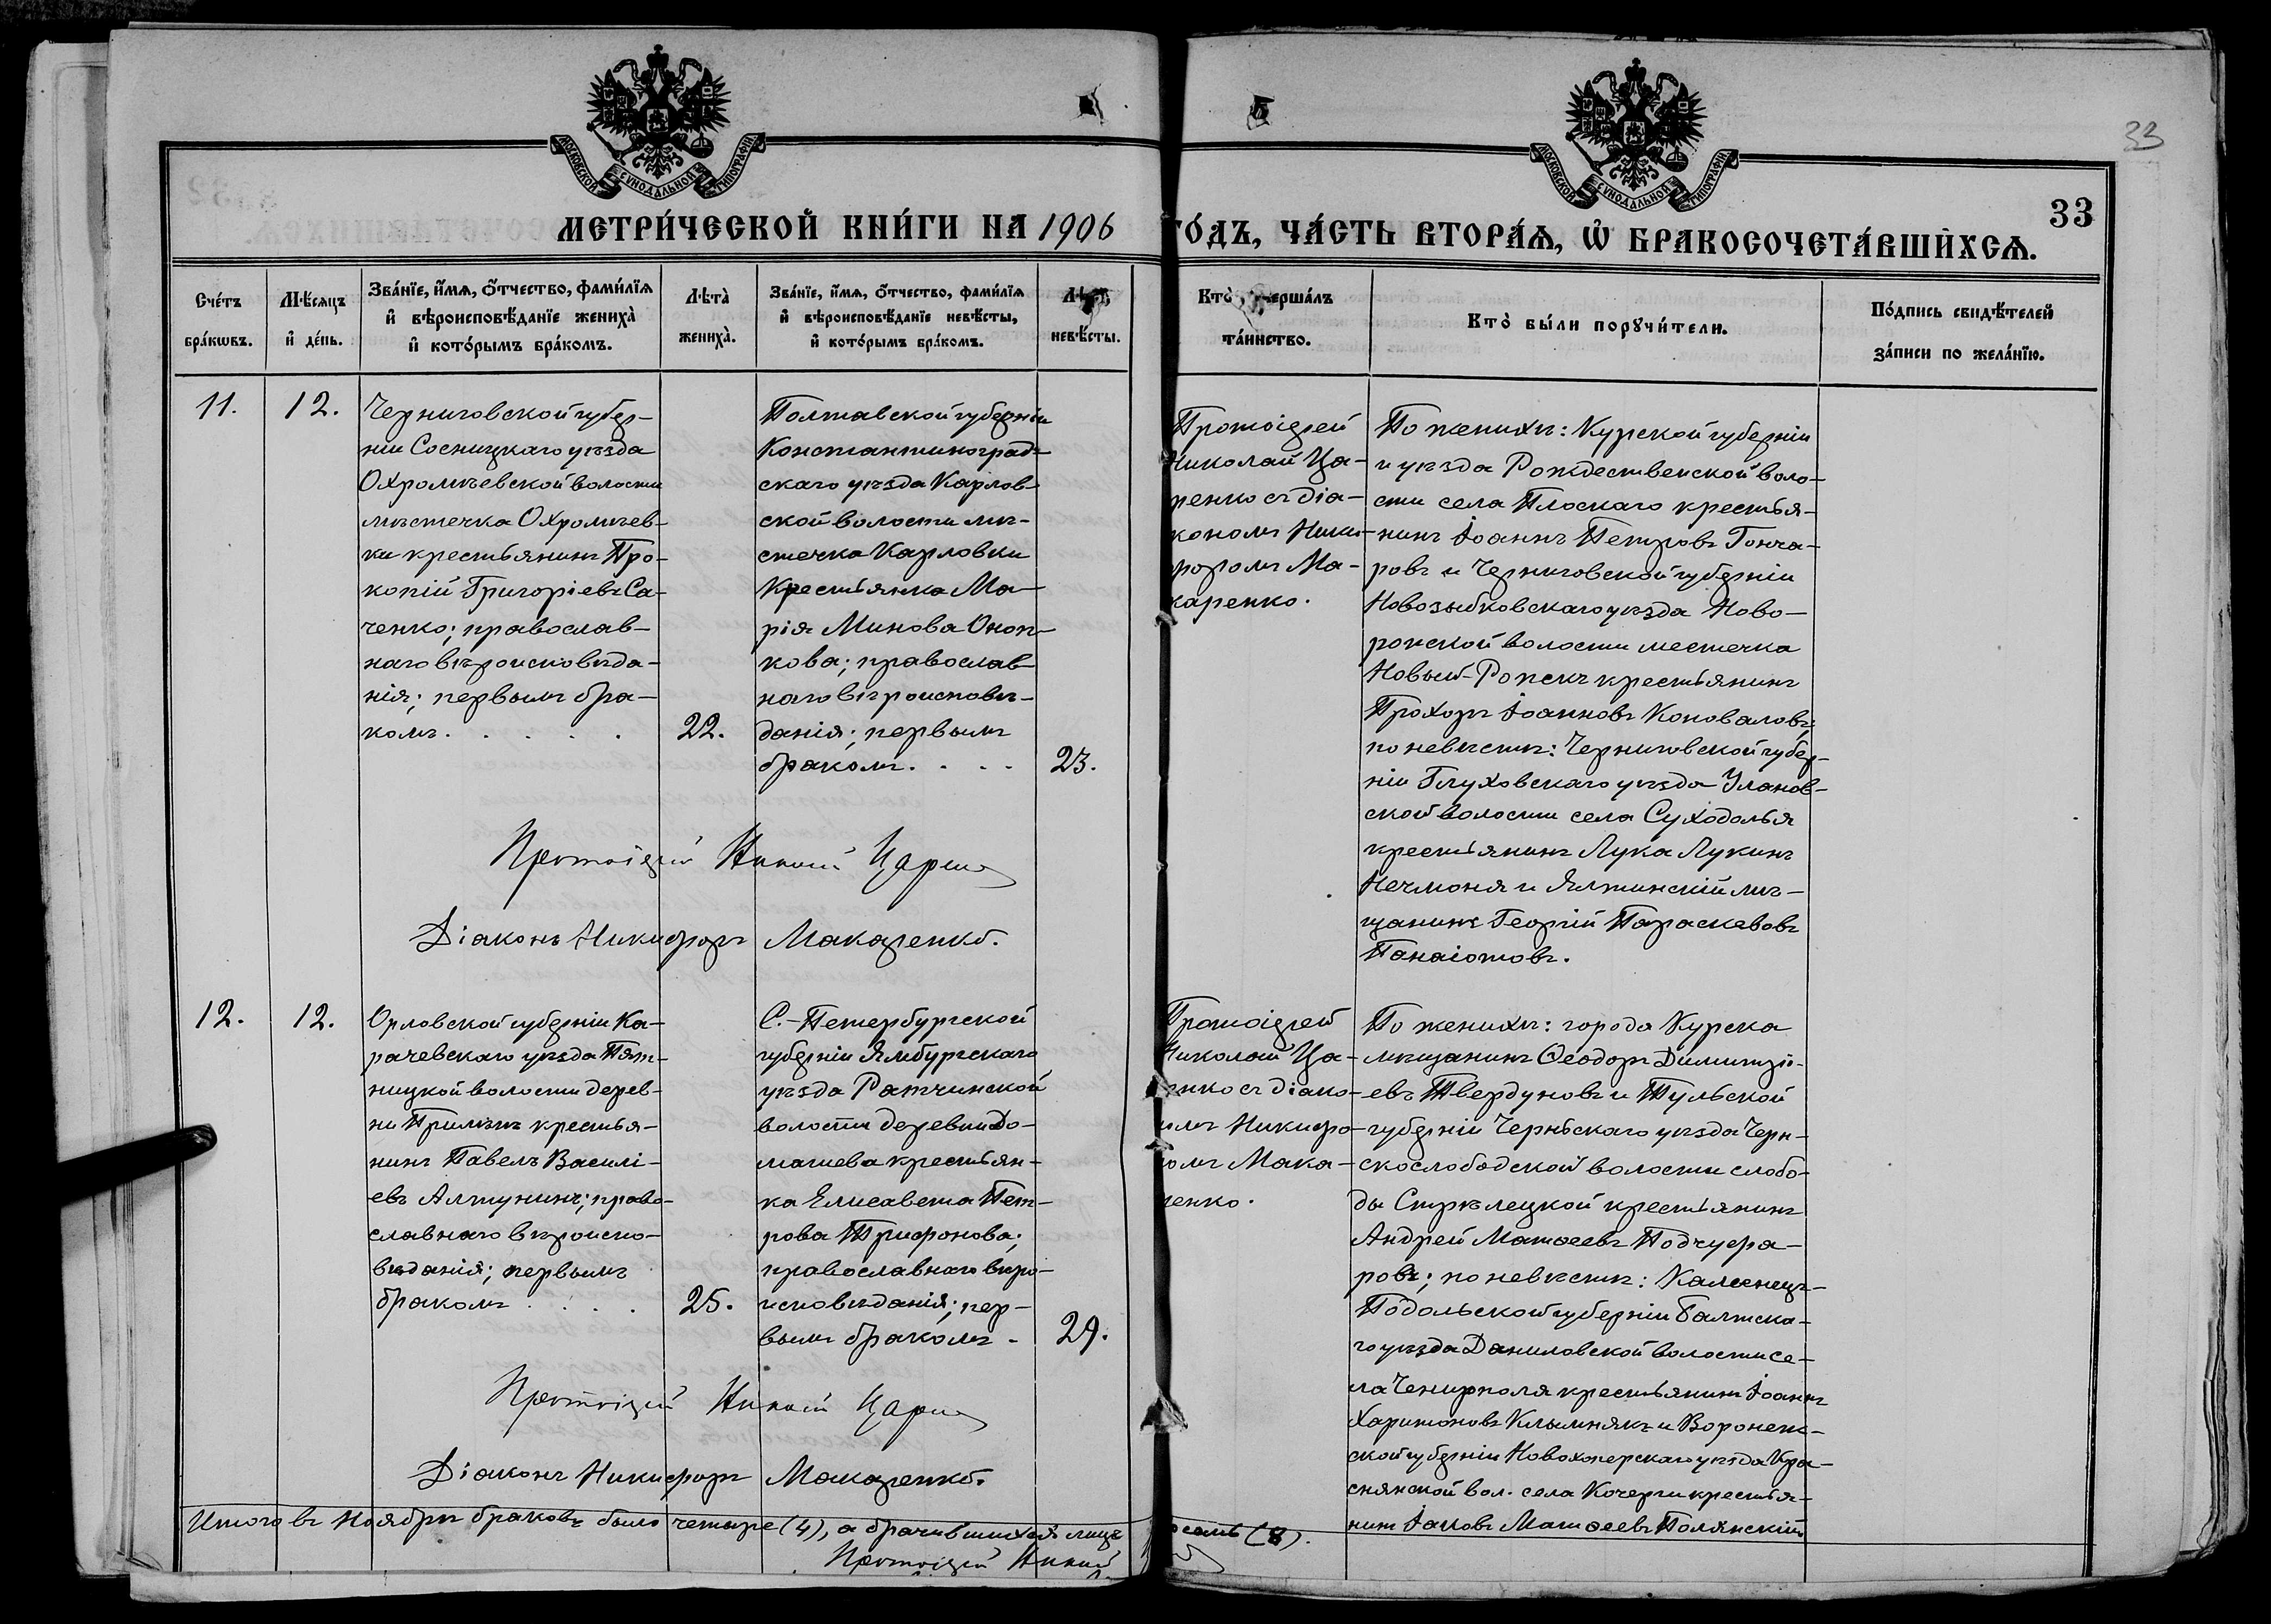 33
МОСКОВСКОЙ СѴНОДАЛЬНОЙ ТИПОГРАФІИ
МОСКОВСКОЙ СѴНОДАЛЬНОЙ ТИПОГРАФІИ
33
МЕТРИ́ЧЕСКОЙ КНИ́ГИ НА 1906
ГО́ДЪ, ЧА́СТЬ ВТОРА́Ѧ, Ѡ҆ БРАКОСОЧЕТА́ВШИХСѦ.
Сче́тъ бра́кѡвъ.
Мѣ́сяцъ и҆ де́нь.
Зва́нїе, и҆́мѧ, ѻ҆́тчество, фами́лїѧ
и҆ вѣроисповѣ́данїе жениха̀
и҆ кото́рымъ бра́комъ.
Лѣта̀ жениха̀.
Зва́нїе, и҆́мѧ, ѻ҆́тчество, фами́лїѧ
и҆ вѣроисповѣ́данїе невѣ́сты,
и҆ кото́рымъ бра́комъ.
невѣ́сты.
Кто̀
та́инство.
Кто̀ бы́ли порꙋчи́тели.
По́дпись свидѣ́телей
за́писи по жела́нїю.
11.
12.
Черниговской губер-
ніи Сосницкаго уѣзда
Охромѣевской волости
мѣстечка Охромѣев-
ки крестьянинъ Про-
копій Григоріевъ Са-
ченко; православ-
наго вѣроисповѣда-
нія; первымъ бра-
комъ. . . . . .
22.
Полтавской губерніи
Константиноград-
скаго уѣзда Карлов-
ской волости мѣ-
стечка Карловки
крестьянка Ма-
рія Минова Оноп-
кова; православ-
наго вѣроисповѣ-
данія; первымъ
бракомъ. . . .
23.
Протоіерей
Николай Ца-
ренко съ діа-
кономъ Ники-
форомъ Ма-
каренко.
По женихѣ: Курской губерніи
и уѣзда Рождественской воло-
сти села Плоскаго крестья-
нинъ Іоаннъ Петровъ Гонча-
ровъ и Черниговской губерніи
Новозыбковскаго уѣзда Ново-
ропской волости местечка
Новый-Ропскъ крестьянинъ
Прохоръ Іоанновъ Коноваловъ;
по невѣстѣ: Черниговской губер-
ніи Глуховскаго уѣзда Уланов-
ской волости села Суходолья
крестьянинъ Лука Лукинъ
Нечмоня и Ялтинскій мѣ-
щанинъ Георгій Параскевовъ
Панаіотовъ.
Протоіерей Николай Царенко
Діаконъ Никифоръ Макаренко.
12.
12.
Орловской губерніи Ка-
рачевскаго уѣзда Пят-
ницкой волости дерев-
ни крестья-
нинъ Павелъ Василі-
евъ Алтунинъ; право-
славнаго вѣроиспо-
вѣданія; первымъ
бракомъ . . . .
25.
С.-Петербургской
губерніи Ямбургскаго
уѣзда Ратчинской
волости деревни До-
машева крестьян-
ка Елисавета Пет-
рова Трифонова;
православнаго вѣро-
исповѣданія; пер-
вымъ бракомъ.
29.
Протоіерей
Николай Ца-
енко съ діако-
номъ Никифо-
ромъ Мака-
ренко.
По женихѣ: города Курска
мѣщанинъ Ѳеодоръ Димитрі-
евъ Твердуновъ и Тульской
губерніи Чернскаго уѣзда Черн-
скослободской волости слобо-
ды Стрѣлецкой крестьянинъ
Андрей Матѳеевъ Подчуфа-
ровъ; по невѣстѣ: Каменецъ-
Подольской губерніи Балтска-
го уѣзда Даниловской волости се-
ла Чемирполя крестьянинъ Іоаннъ
Харитоновъ Клымнякъ и Воронеж-
ской губерніи Новохоперскаго уѣзда Кра-
снянской вол. села Кочерги крестья-
нинъ Іаковъ Матѳеевъ Полянскій
Протоіерей Николай Царенко
Діаконъ Никифоръ Макаренко.
Итого въ Ноябрѣ браковъ было четыре (4), а брачившихся лицъ восемь (8).
Протоіерей Николай